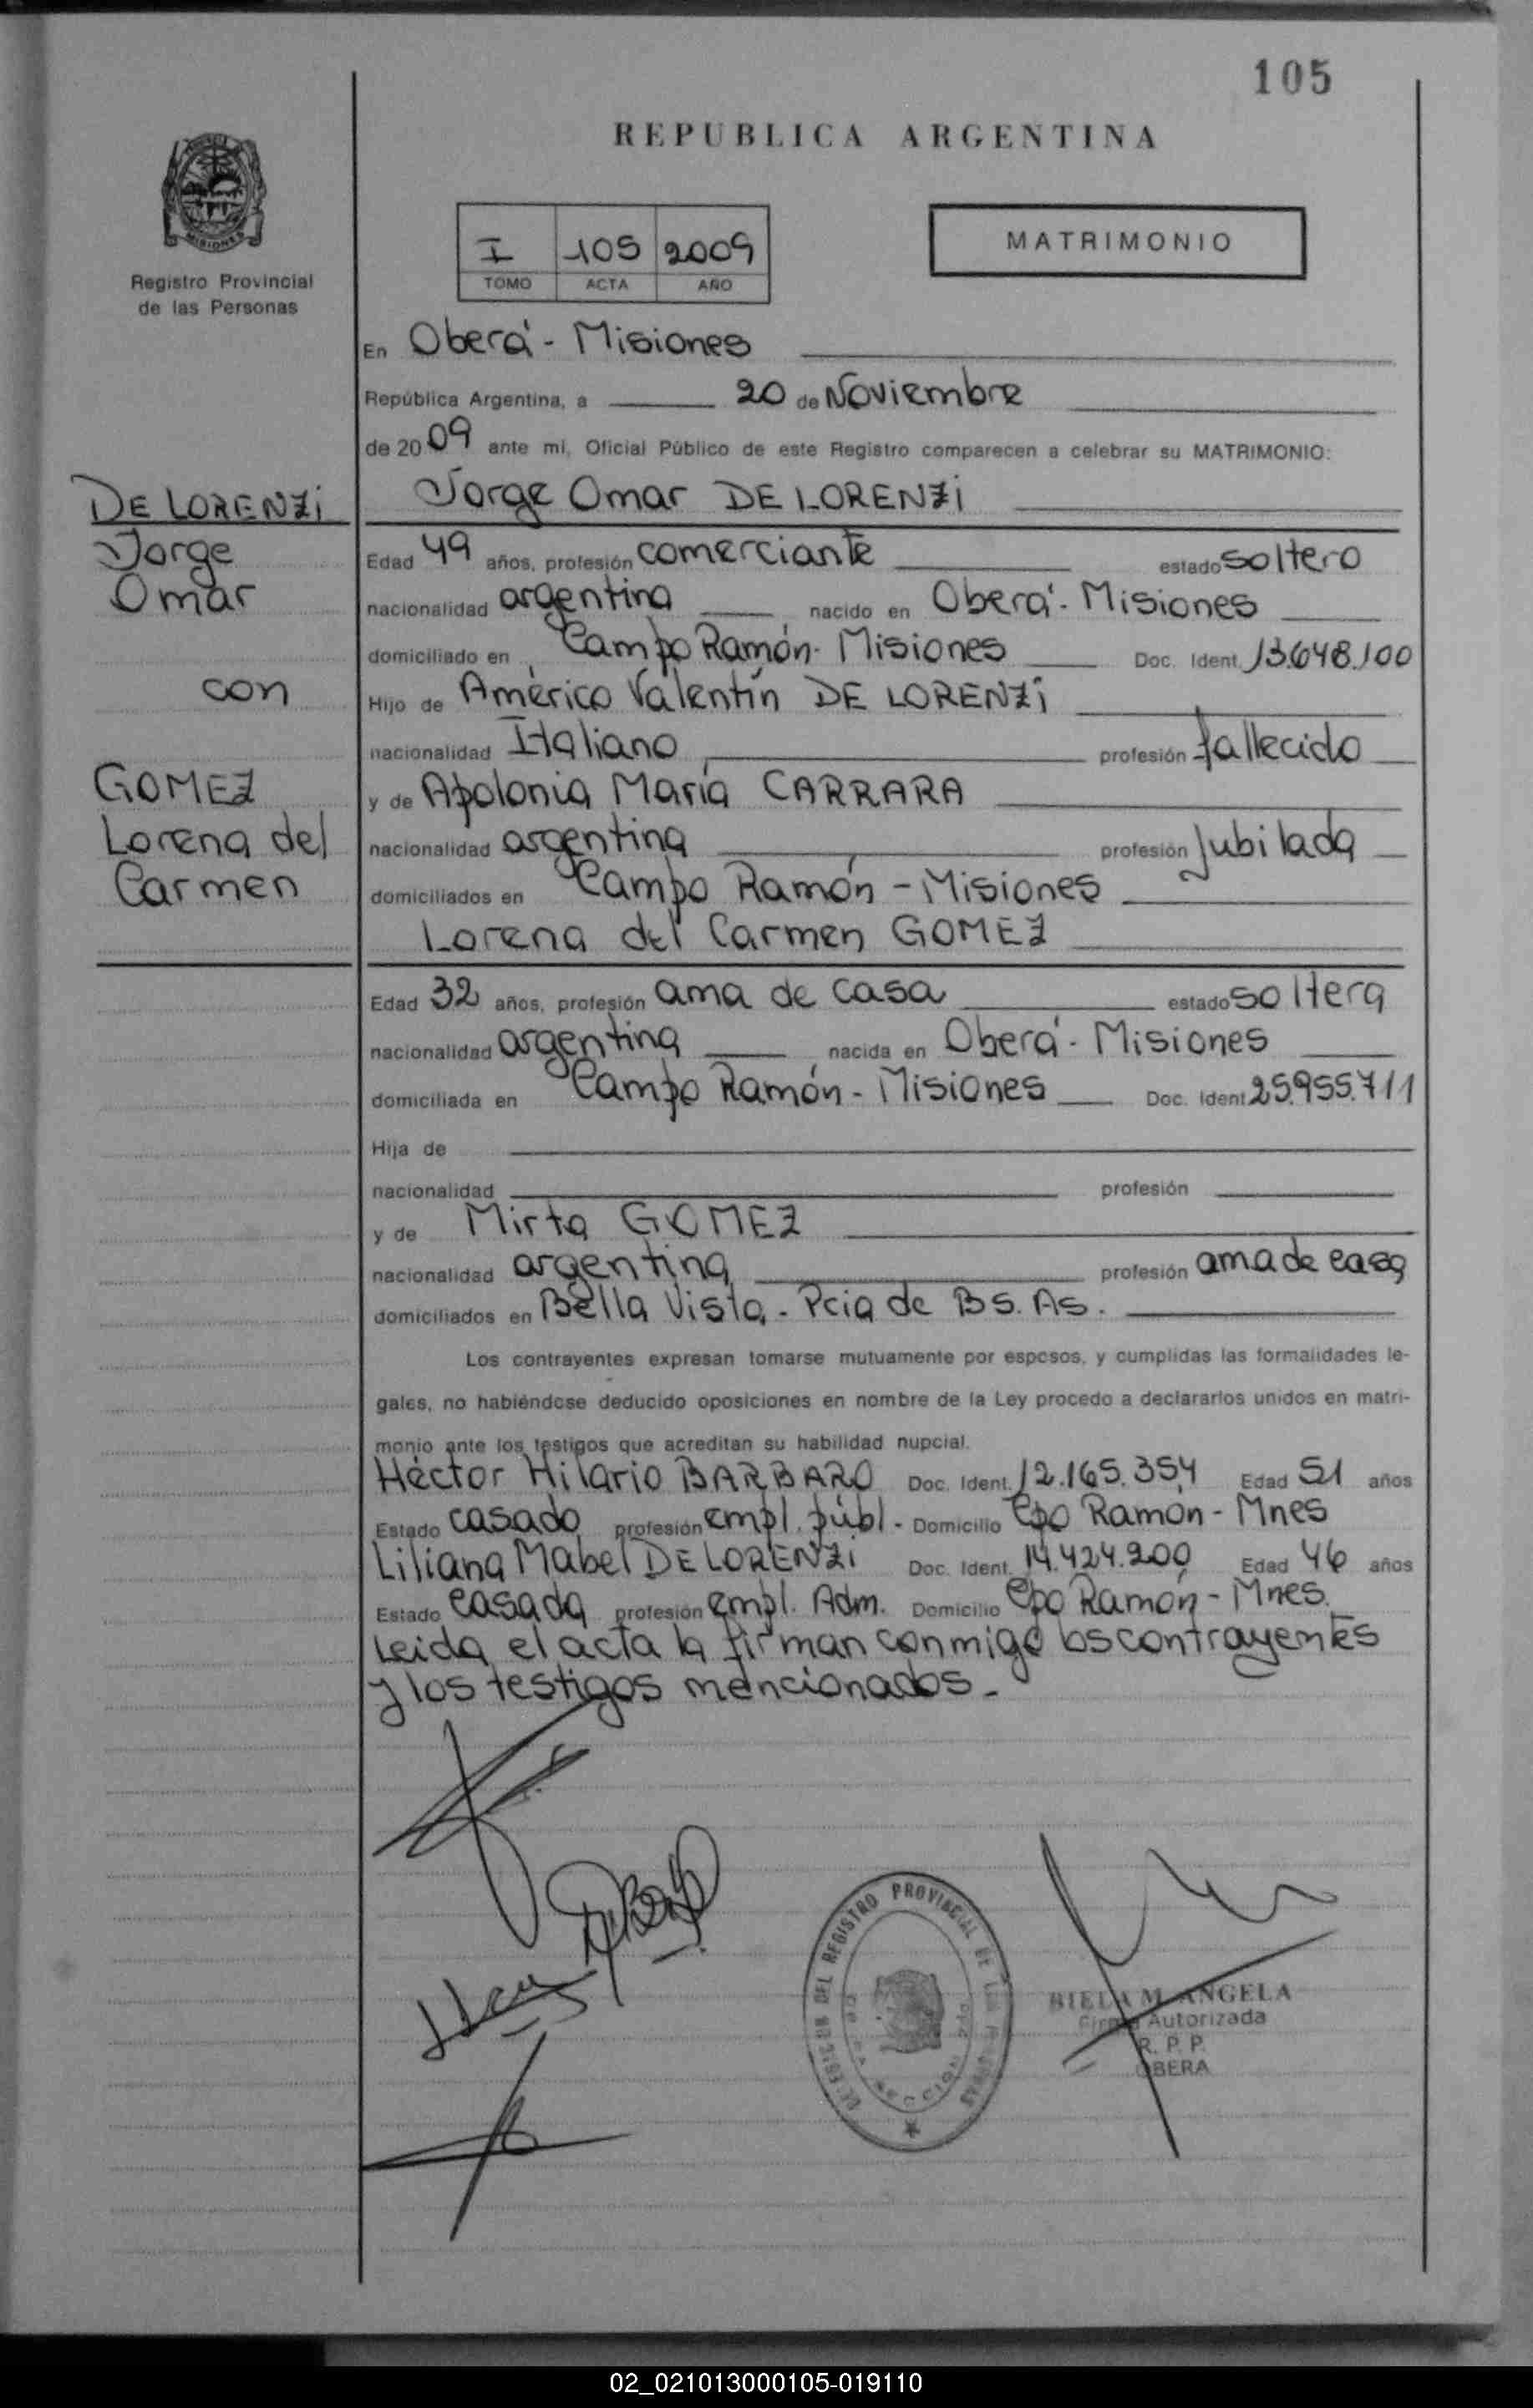 105
REPUBLICA ARGENTINA
I 105 2009
TOMO ACTA AÑO
MATRIMONIO
MISIONES
Registro Provincial
de las Personas
En Oberá - Misiones
República Argentina, a 20 de Noviembre
de 2009 ante mi, Oficial Público de este Registro comparecen a celebrar su MATRIMONIO:
Jorge Omar DE LORENZI
DE LORENZI
Jorge
Omar
con
GOMEZ
Lorena del
Carmen
Edad 49 años, profesión comerciante estado soltero
nacionalidad argentina nacido en Oberá - Misiones
domiciliado en Campo Ramón - Misiones Doc. Ident. 13.648.100
Hijo de Américo Valentín DE LORENZI
nacionalidad Italiano profesión fallecido
y de Apolonia María CARRARA
nacionalidad argentina profesión Jubilada
domiciliados en Campo Ramón - Misiones
Lorena del Carmen GOMEZ
Edad 32 años, profesión ama de casa estado soltera
nacionalidad argentina nacida en Oberá - Misiones
domiciliada en Campo Ramón - Misiones Doc. Ident 25.955.711
Hija de
nacionalidad profesión
y de Mirta GOMEZ
nacionalidad argentina profesión ama de casa
domiciliados en Bella Vista - Pcia de BS. AS.
Los contrayentes expresan tomarse mutuamente por esposos, y cumplidas las formalidades le-
gales, no habiéndose deducido oposiciones en nombre de la Ley procedo a declararlos unidos en matri-
monio ante los testigos que acreditan su habilidad nupcial.
Héctor Hilario BARBARO Doc. Ident. 12.165.354 Edad 51 años
Estado casado profesión empl. públ. Domicilio Cpo Ramón - Mnes
Liliana Mabel DE LORENZI Doc. Ident. 14.424.200 Edad 46 años
Estado casada profesión empl. Adm. Domicilio Cpo Ramón - Mnes.
Leida el acta la firman conmigo los contrayentes
y los testigos mencionados -
DEL REGISTRO PROVINCIAL DE LAS PERSONAS
BIELA M. ANGELA
Firma Autorizada
R. P. P.
OBERA
02_021013000105-019110